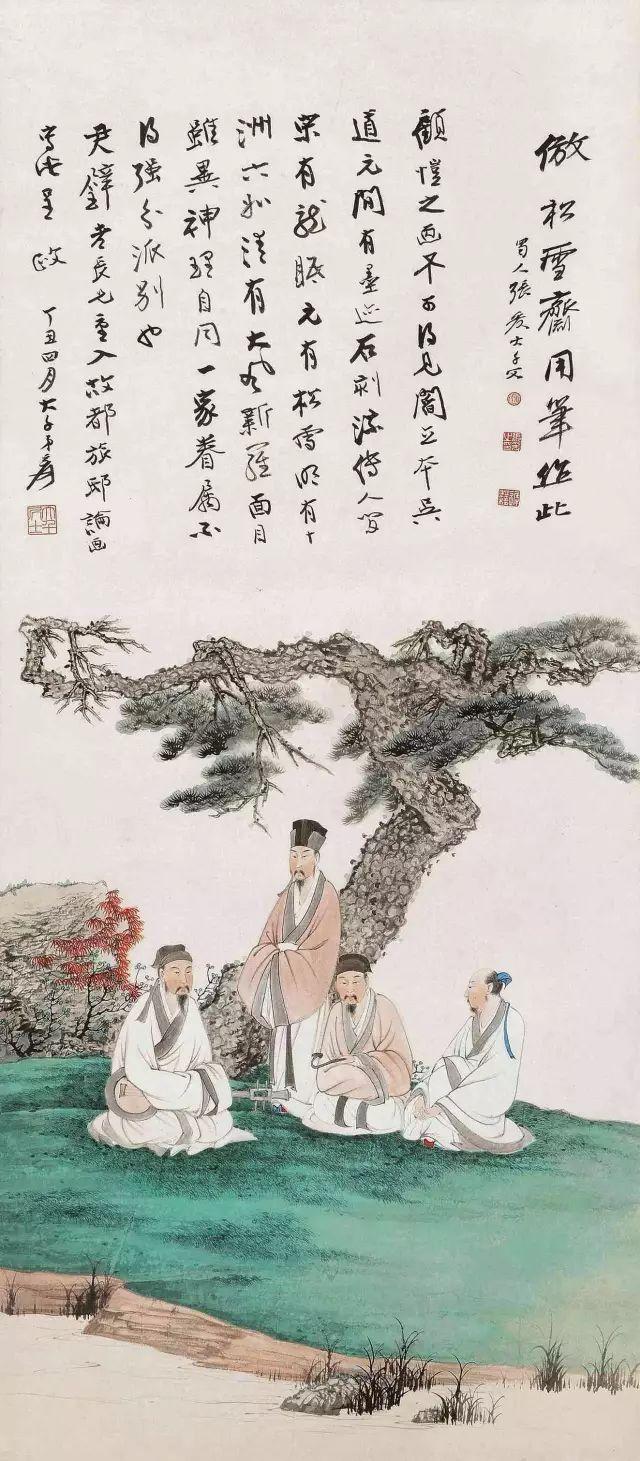 倣松雪齋用筆作此
蜀人張爰大千父
顧愷之画不可得見閻立本吳
道元間有墨迹石刻流傳人間
宋有龍眠元有松雪明有十
洲六如清有大風新羅面目
雖異神理自同一家眷屬不
得強分派別也
老長兄重入故都旅邸論画
寫此呈政 丁丑四月大千弟爰